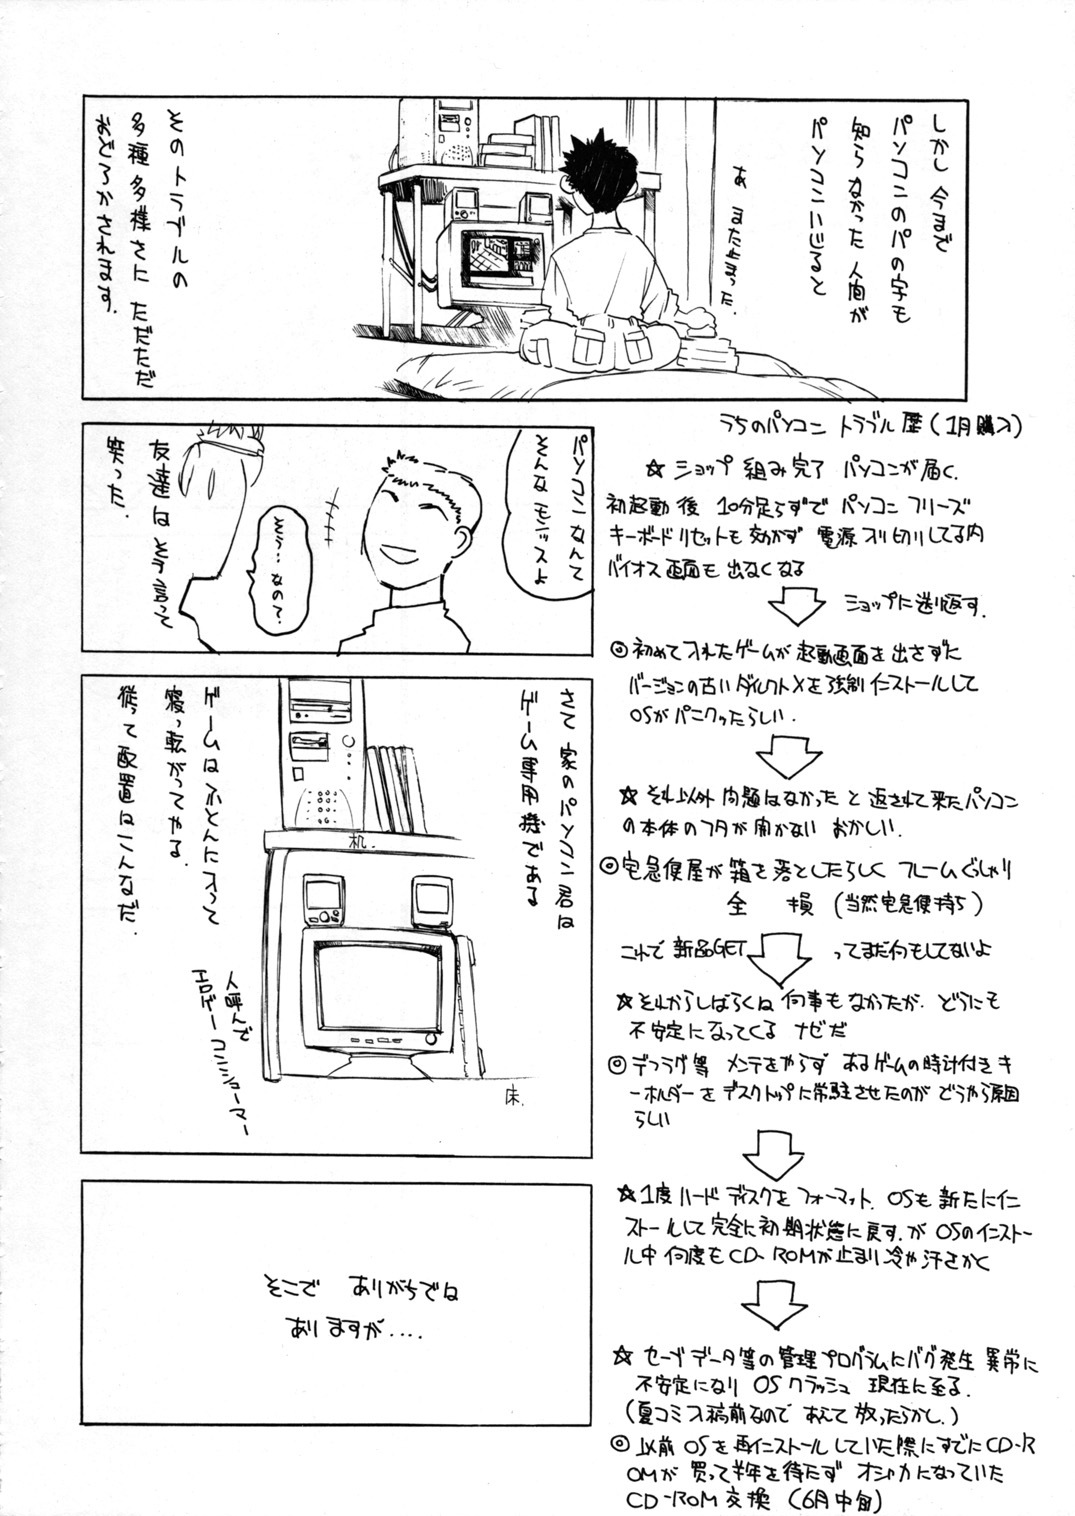 しかし 今まで
パソコンのパの字も
知らなかった 人間が
パソコンいじると
あ また止まった.
そのトラブルの
多種多様さに ただただ
おどろかされます.
パソコンなんて
そんなモンッスよ
そう…なの?
友達は そう言って
笑った.
さて 家のパソコン君は
ゲーム専用機である
ゲームはふとんに入って
寝っ転がってやる.
従って配置はこんなだ.
机.
床.
人呼んで
エロゲーコンショーマー
そこで ありがちでは
ありますが....
うちのパソコン トラブル歴(1月購入)
☆ショップ 組み完了 パソコンが届く.
初起動後 10分足らずで パソコン フリーズ
キーボードリセットも効かず 電源入り切りしてる内
バイオス画面も 出なくなる
ショップに送り返す.
◎初めて入れたゲームが 起動画面を出さずに
バージョンの古いダイレクトXを強制インストールして
OSがパニクったらしい.
☆それ以外 問題はなかった と返されて来たパソコン
の本体のフタが開かない おかしい.
◎宅急便屋が箱を落としたらしく フレームぐしゃり
全 損 (当然宅急便持ち)
これで新品GET ってまだ何もしてないよ
☆それからしばらくは 何事もなかったが. どうにも
不安定になってくる ナゼだ
◎デフラグ等 メンテをやらず あるゲームの時計付きキ
ーホルダーをデスクトップに常駐させたのが どうやら原因
らしい
☆1度ハードディスクをフォーマット. OSも新たにイン
ストールして完全に初期状態に戻す.が OSのインストー
ル中 何度もCD-ROMが止まり冷や汗さかく
☆セーブデータ等の管理プログラムにバグ発生 異常に
不安定になり OSクラッシュ 現在に至る.
(夏コミ入稿前なので あえて放ったらかし.)
◎以前 OSを再インストールしていた際にすでにCD-R
OMが 買って半年を待たず オシャカになっていた
CD-ROM交換 (6月中旬)